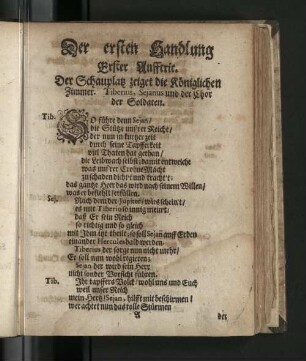 Der ersten Handlung
Erster Aufftrit.
Der Schauplatz zeiget die Königlichen
Zimmer. Tiberius, Sejanus und der Chor
der Soldaten.
Tib. SO fähre denn Sejan/
die Stütze unsrer Reiche/
der nun in kurtzer zeit
durch seine Tapfferkeit
viel Thaten hat gethan/
die Leibwach selbst; damit entweiche
was unsrer Crohne Macht
zu schaden dichtet und tracht't:
das gantze Heer das wird nach seinem Willen/
was er befiehlt/ erfüllen.
Sej. Nach dem der Jupiter/ wie es scheint/
es mit Tiberio so innig meint/
daß Er sein Reich
so richtig und so gleich
mit Ihm itzt theilt/ so soll Sejan auff Erden
ein ander Hercules bald werden.
Tiberius der sorge nun nicht mehr/
Er soll nun wohl regieren;
Sejan der wird sein Heer
nicht sonder Vorsicht führen.
Tib. Ihr tapffers Volck/ wohl uns und Euch
weil unser Reich
mein Hertz/ Sejan, hilfft mit beschirmen/
wer achtet nun das tolle Stürmen
A der